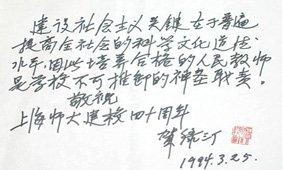 建设社会主义关键在于普遍
提高全社会的科学文化道德
水平，因此培养合格的人民教师
是学校不可推卸的神圣职责。
敬祝
上海师大建校四十周年
贺绿汀
1994.3.25.